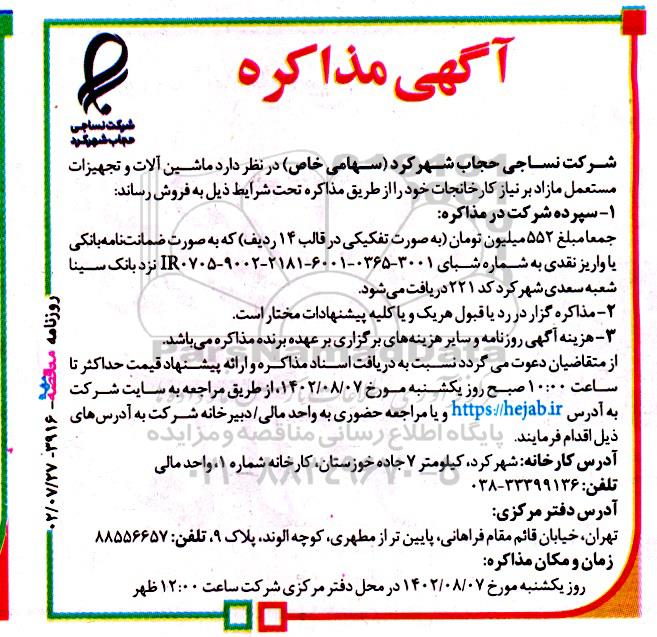 آگهی مذاکره
شرکت نساجی
حجاب شهرکرد
شرکت نساجی حجاب شهرکرد (سهامی خاص) در نظر دارد ماشین آلات و تجهیزات
مستعمل مازاد بر نیاز کارخانجات خود را از طریق مذاکره تحت شرایط ذیل به فروش رساند:
۱- سپرده شرکت در مذاکره:
جمعا مبلغ ۵۵۲ میلیون تومان (به صورت تفکیکی در قالب ۱۴ ردیف) که به صورت ضمانت‌نامه بانکی
یا واریز نقدی به شماره شبای IR۰۷۰۵-۹۰۰۲-۲۱۸۱-۶۰۰۱-۰۳۶۵-۳۰۰۱ نزد بانک سینا
شعبه سعدی شهرکرد کد ۲۲۱ دریافت می‌شود.
۲- مذاکره گزار در رد یا قبول هر یک و یا کلیه پیشنهادات مختار است.
۳- هزینه آگهی روزنامه و سایر هزینه‌های برگزاری بر عهده برنده مذاکره می‌باشد.
از متقاضیان دعوت می گردد نسبت به دریافت اسناد مذاکره و ارائه پیشنهاد قیمت حداکثر تا
ساعت ۱۰:۰۰ صبح روز یکشنبه مورخ ۱۴۰۲/۰۸/۰۷، از طریق مراجعه به سایت شرکت
به آدرس https://hejab.ir و یا مراجعه حضوری به واحد مالی/دبیرخانه شرکت به آدرس‌های
ذیل اقدام فرمایند.
آدرس کارخانه: شهرکرد، کیلومتر ۷ جاده خوزستان، کارخانه شماره ۱، واحد مالی
تلفن: ۳۳۳۹۹۱۳۶-۰۳۸
آدرس دفتر مرکزی:
تهران، خیابان قائم مقام فراهانی، پایین تر از مطهری، کوچه الوند، پلاک ۹، تلفن: ۸۸۵۵۶۶۵۷
زمان و مکان مذاکره:
روز یکشنبه مورخ ۱۴۰۲/۰۸/۰۷ در محل دفتر مرکزی شرکت ساعت ۱۲:۰۰ ظهر
روزنامه مناقصه - ۳۹۱۶ - ۰۲/۰۷/۲۷
ParsNamadData
پایگاه اطلاع رسانی مناقصه و مزایده
۰۲۱-۸۸۳۴۹۶۷۰-۵